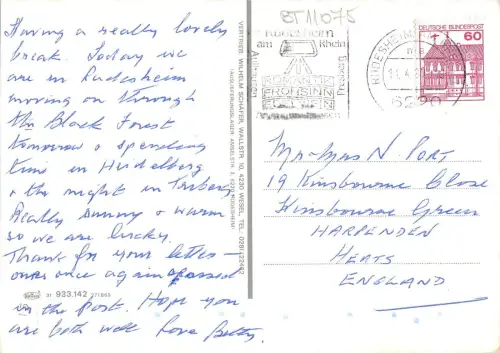 Having a really lovely
break. Today we
are in Rudesheim
moving on through
the Black Forest
tomorrow & spending
time in Heidelberg
& the night in Triberg
Really sunny & warm
so we are lucky.
Thank for your letter –
ours once again crossed
in the post. Hope you
are both well Love Betty.
31 933.142
VERTRIEB WILHELM SCHÄFER, WALLSTR. 10, 4230 WESEL, TEL. 0281/
BT11075
Rüdesheim
am Rhein
ROMANTIK
FROHSINN
RÜDESHEIM
6220
DEUTSCHE BUNDESPOST
60
Mr & Mrs N. PORT
19 Kinsbourne Close
Kinsbourne Green
HARPENDEN
HERTS
ENGLAND